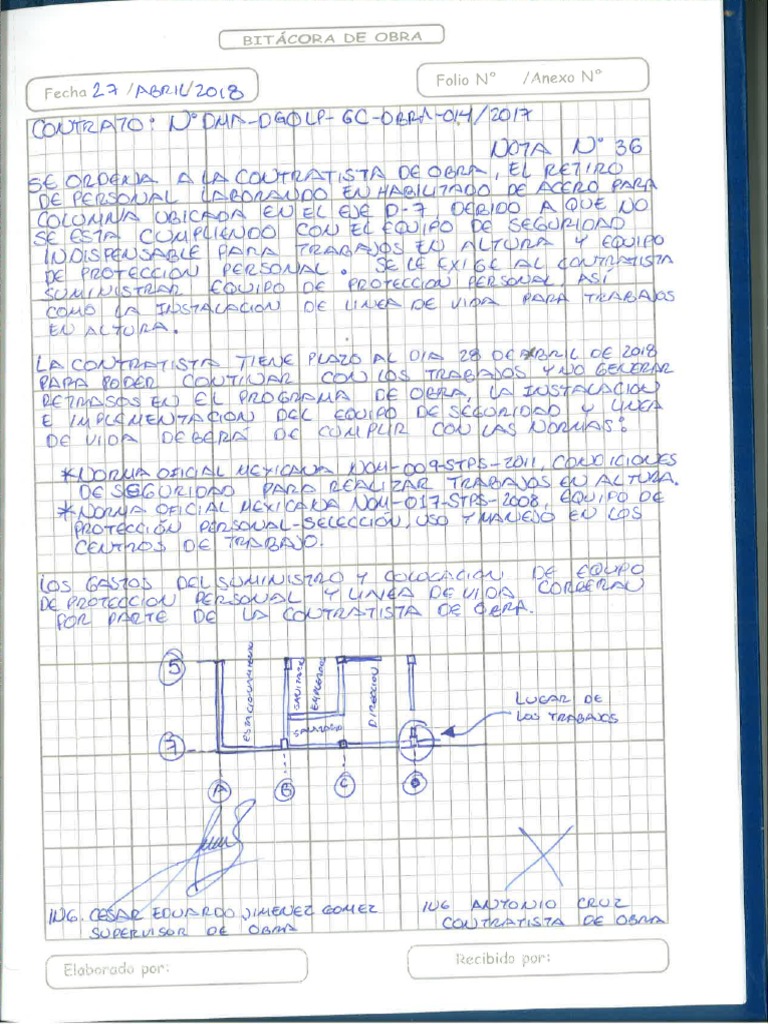 BITÁCORA DE OBRA
Fecha 27/ABRIL/2018
Folio N° /Anexo N°
CONTRATO: N° DMA-DGOLP-GC-OBRA-014/2017
NOTA N° 36
SE ORDENA A LA CONTRATISTA DE OBRA, EL RETIRO
DE PERSONAL LABORANDO EN HABILITADO DE ACERO PARA
COLUMNA UBICADA EN EL EJE D-7 DEBIDO A QUE NO
SE ESTA CUMPLIENDO CON EL EQUIPO DE SEGURIDAD
INDISPENSABLE PARA TRABAJOS EN ALTURA Y EQUIPO
DE PROTECCION PERSONAL. SE LE EXIGE AL CONTRATISTA
SUMINISTRAR EQUIPO DE PROTECCION PERSONAL, ASÍ
COMO LA INSTALACION DE LINEA DE VIDA PARA TRABAJOS
EN ALTURA.
LA CONTRATISTA TIENE PLAZO AL DIA 28 DE ABRIL DE 2018
PARA PODER CONTINAR CON LOS TRABAJOS Y NO GENERAR
RETRASOS EN EL PROGRAMA DE OBRA, LA INSTALACION
E IMPLEMENTACION DEL EQUIPO DE SEGURIDAD Y LINEA
DE VIDA DEBERÁ DE CUMPLIR CON LAS NORMAS:
*NORMA OFICIAL MEXICANA NOM-009-STPS-2011, CONDICIONES
DE SEGURIDAD PARA REALIZAR TRABAJOS EN ALTURA.
*NORMA OFICIAL MEXICANA NOM-017-STPS-2008, EQUIPO DE
PROTECCIÓN PERSONAL-SELECCIÓN, USO Y MANEJO EN LOS
CENTROS DE TRABAJO.
LOS GASTOS DEL SUMINISTRO Y COLOCACION DE EQUIPO
DE PROTECCION PERSONAL Y LINEA DE VIDA CORRERAN
POR PARTE DE LA CONTRATISTA DE OBRA.
5
ESTACIONAMIENTO
SANITARIO
DIRECCION
LUGAR DE
LOS TRABAJOS
7
A
B
C
D
ING. CESAR EDUARDO JIMENEZ GOMEZ
SUPERVISOR DE OBRA
ING ANTONIO CRUZ
CONTRATISTA DE OBRA
Elaborado por:
Recibido por: